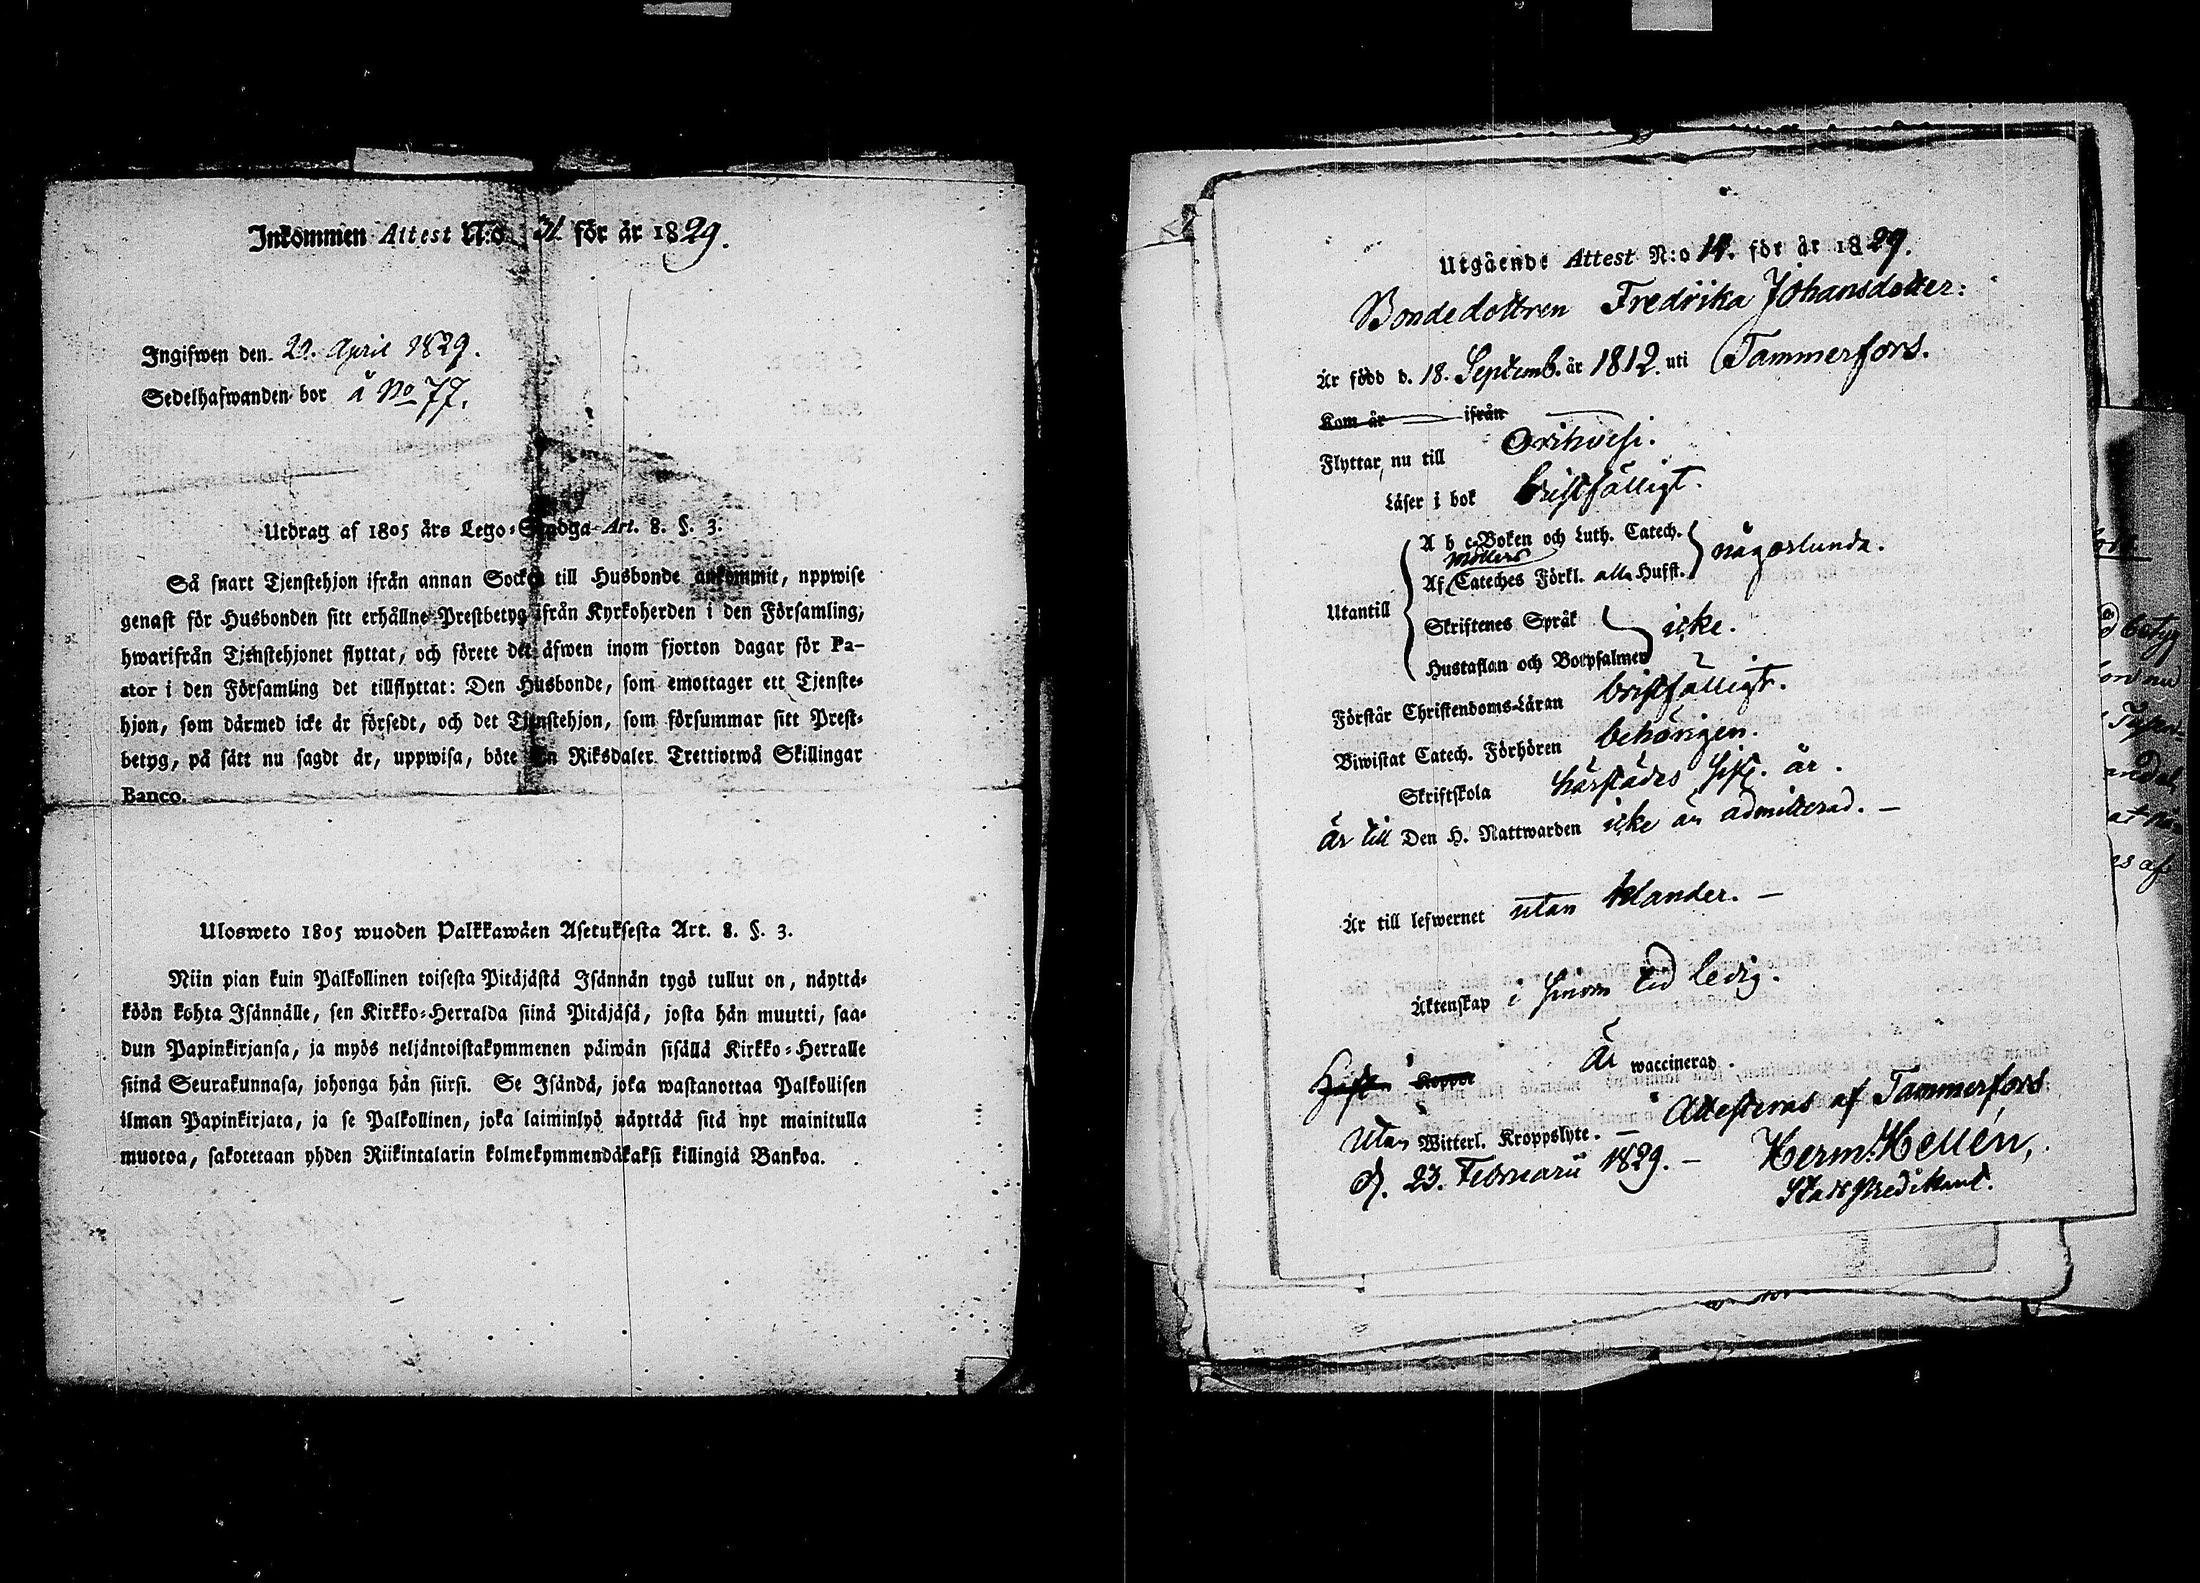 Inkommen Attest N:o 31. för år 1829.
Ingifwen den 20. April 1829.
Sedelhafwanden bor å No 77.
Utdrag af 1805 års Lego-Stadga Art. 8. §. 3.
Så snart Tjenstehjon ifrån annan Socken till Husbonde ankommit, uppwise
genast för Husbonden sitt erhållne Prestbetyg ifrån Kyrkoherden i den Församling,
hwarifrån Tjenstehjonet flyttat, och förete det äfwen inom fjorton dagar för Pa-
stor i den Församling det tillflyttat: Den Husbonde, som emottager ett Tjenste-
hjon, som därmed icke är försedt, och det Tjenstehjon, som försummar sitt Prest-
betyg, på sätt nu sagdt är, uppwisa, böte En Riksdaler Trettiotwå Skillingar
Banco.
Ulosweto 1805 wuoden Palkkawäen Asetuksesta Art. 8. §. 3.
Niin pian kuin Palkollinen toisesta Pitäjästä Isännän tygö tullut on, näyttä-
köön kohta Isännälle, sen Kirkko-Herralda siinä Pitäjäsä, josta hän muutti, saa-
dun Papinkirjansa, ja myös neljäntoistakymmenen päiwän sisällä Kirkko-Herralle
siinä Seurakunnasa, johonga hän siirsi. Se Isändä, joka wastanottaa Palkollisen
ilman Papinkirjata, ja se Palkollinen, joka laiminlyö näyttää sitä nyt mainitulla
muotoa, sakotetaan yhden Riikintalarin kolmekymmendäkaksi killingiä Bankoa.
Utgående Attest N:o 14. för år 1829.
Bondedottren Fredrika Johansdotter:
Är född d. 18. Septemb. år 1812. uti Tammerfors.
Kom år ifrån
Flyttar nu till Orihvesi.
Läser i bok bristfälligt.
A b c-Boken och Luth. Catech.
Möllers
Af Cateches Förkl. alla Hufst. någorlunda.
Utantill
Skriftenes Språk
icke.
Hustaflan och Botpsalmer
Förstår Christendoms-Läran bristfälligt.
Biwistat Catech. Förhören behörigen.
Skriftskola härstädes sistl. år.
Är till Den H. Nattwarden icke än admitterad. —
Är till lefwernet utan klander. —
Äktenskap i hinom tid ledig.
Haft Koppor Är waccinerad.
Utan Witterl. Kroppslyte. — Attesteras af Tammerfors
d. 23. Februarii 1829. — Herm. Hellén,
Stads Predikant.
betyg